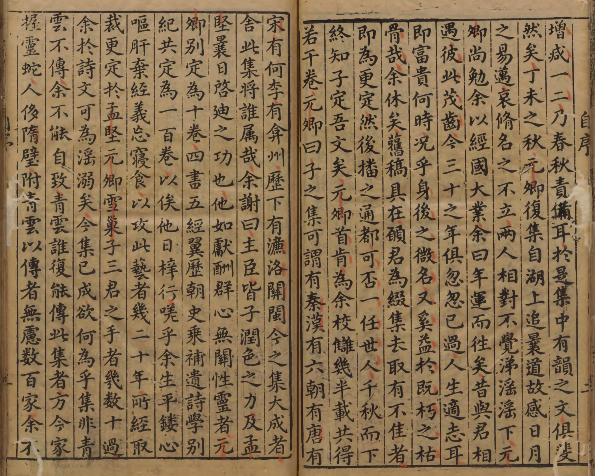 增咸一二乃春秋責備耳於是集中有韻之文俱斐
然矣丁未之秋元卿復集自湖上追曩道故感日月
之易邁哀脩名之不立兩人相對不覺涕滛滛下元
卿尚勉余以經國大業余曰年運而徃矣昔與君相
遇彼此茂齒今三十之年俱忽忽已過人生適志耳
即富貴何時况乎身後之微名又奚益於既朽之枯
骨哉余休矣舊稿具在頋君為綴集去取有不佳者
即為更定然後播之通都可否一任世人千秋而下
終知子定吾文矣元卿首肯為余校讎幾半載共得
若干卷元卿曰子之集可謂有秦漢有六朝有唐有
自序
宋有何李有弇州歷下有濂洛關閩今之集大成者
舍此集將誰属哉余謝曰主臣皆子潤色之力及孟
堅曩日啓廸之功也他如獻酬群心無關性靈者元
卿别定為十卷四書五經翼歷朝史乘補遺詩學别
紀共定為一百卷以俟他日梓行嗟乎余生平鏤心
嘔肝棄經義忘寢食以攻此藝者幾二十年所經取
裁更定於孟堅元卿雪巢子三君之手者幾数十過
余於詩文可為滛溺矣今集已成欲何為乎集非青
雲不傳余不能自致青雲誰復能傳此集者方今家
握靈蛇人侈隋璧附青雲以傳者無慮数百家余不